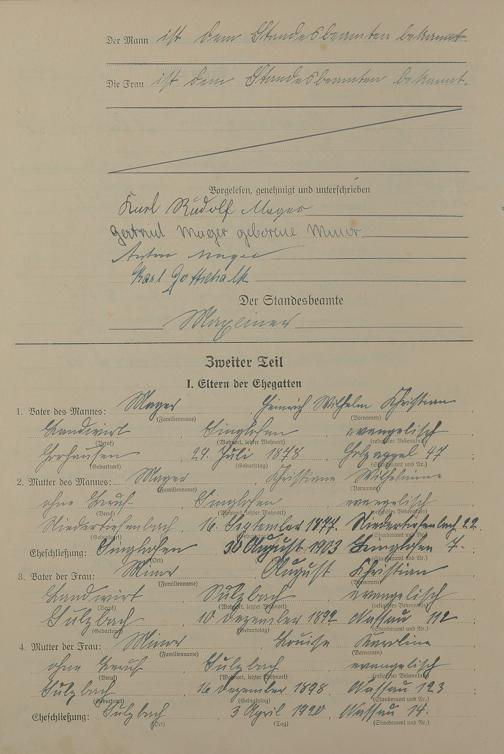 Der Mann ist dem Standesbeamten bekannt.
Die Frau ist dem Standesbeamten bekannt.
Vorgelesen, genehmigt und unterschrieben
Karl Rudolf Mager
Gertrud Mager geborene Minor
Anton Mager
Karl Gottschalk
Der Standesbeamte
Zweiter Teil
I. Eltern der Ehegatten
1. Vater des Mannes: Mager Heinrich Wilhelm Christian
(Familienname) (Vornamen)
Landwirt Singhofen evangelisch
(Beruf) (Wohnort, letzter Wohnort) (religiöses Bekenntnis)
24. Juli 1878 Holzappel 47
(Geburtsort) (Geburtstag) (Standesamt und Nr.)
2. Mutter des Mannes: Mager Christiane Wilhelmine
(Familienname) (Vornamen)
ohne Beruf Singhofen evangelisch
(Beruf) (Wohnort, letzter Wohnort) (religiöses Bekenntnis)
Niedertiefenbach 16. September 1877 Niedertiefenbach 22
(Geburtsort) (Geburtstag) (Standesamt und Nr.)
Eheschließung: Singhofen 30 August 1903 Singhofen 7.
(Ort)
3. Vater der Frau: Minor August Christian
(Familienname) (Vornamen)
Landwirt Sulzbach evangelisch
(Beruf) (Wohnort, letzter Wohnort) (religiöses Bekenntnis)
Sulzbach 10 Dezember 1892 Nassau 112
(Geburtsort) (Geburtstag) (Standesamt und Nr.)
4. Mutter der Frau: Minor Louise Karoline
(Familienname) (Vornamen)
ohne Beruf Sulzbach evangelisch
(Beruf) (Wohnort, letzter Wohnort) (religiöses Bekenntnis)
Sulzbach 16 Dezember 1898 Nassau 123
(Geburtsort) (Geburtstag) (Standesamt und Nr.)
Eheschließung: Sulzbach 3 April 1920 Nassau 14.
(Ort) (Tag) (Standesamt und Nr.)